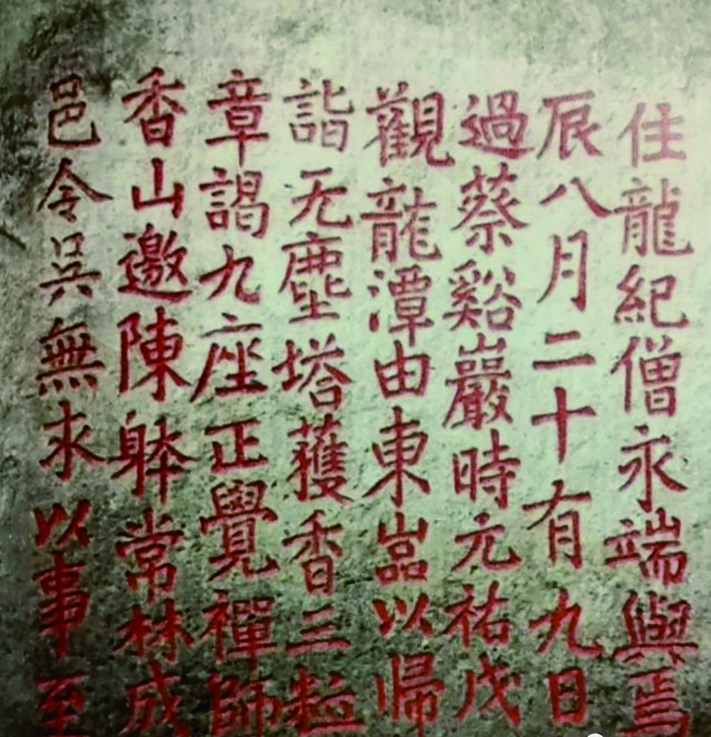 邑令吳無求以事至
香山邀陳躰常林成
章謁九座正覺禪師
詣无塵塔獲香三粒
觀龍潭由東嵓以帰
過蔡谿巖時元祐戊
辰八月二十有九日
住龍紀僧永端與焉